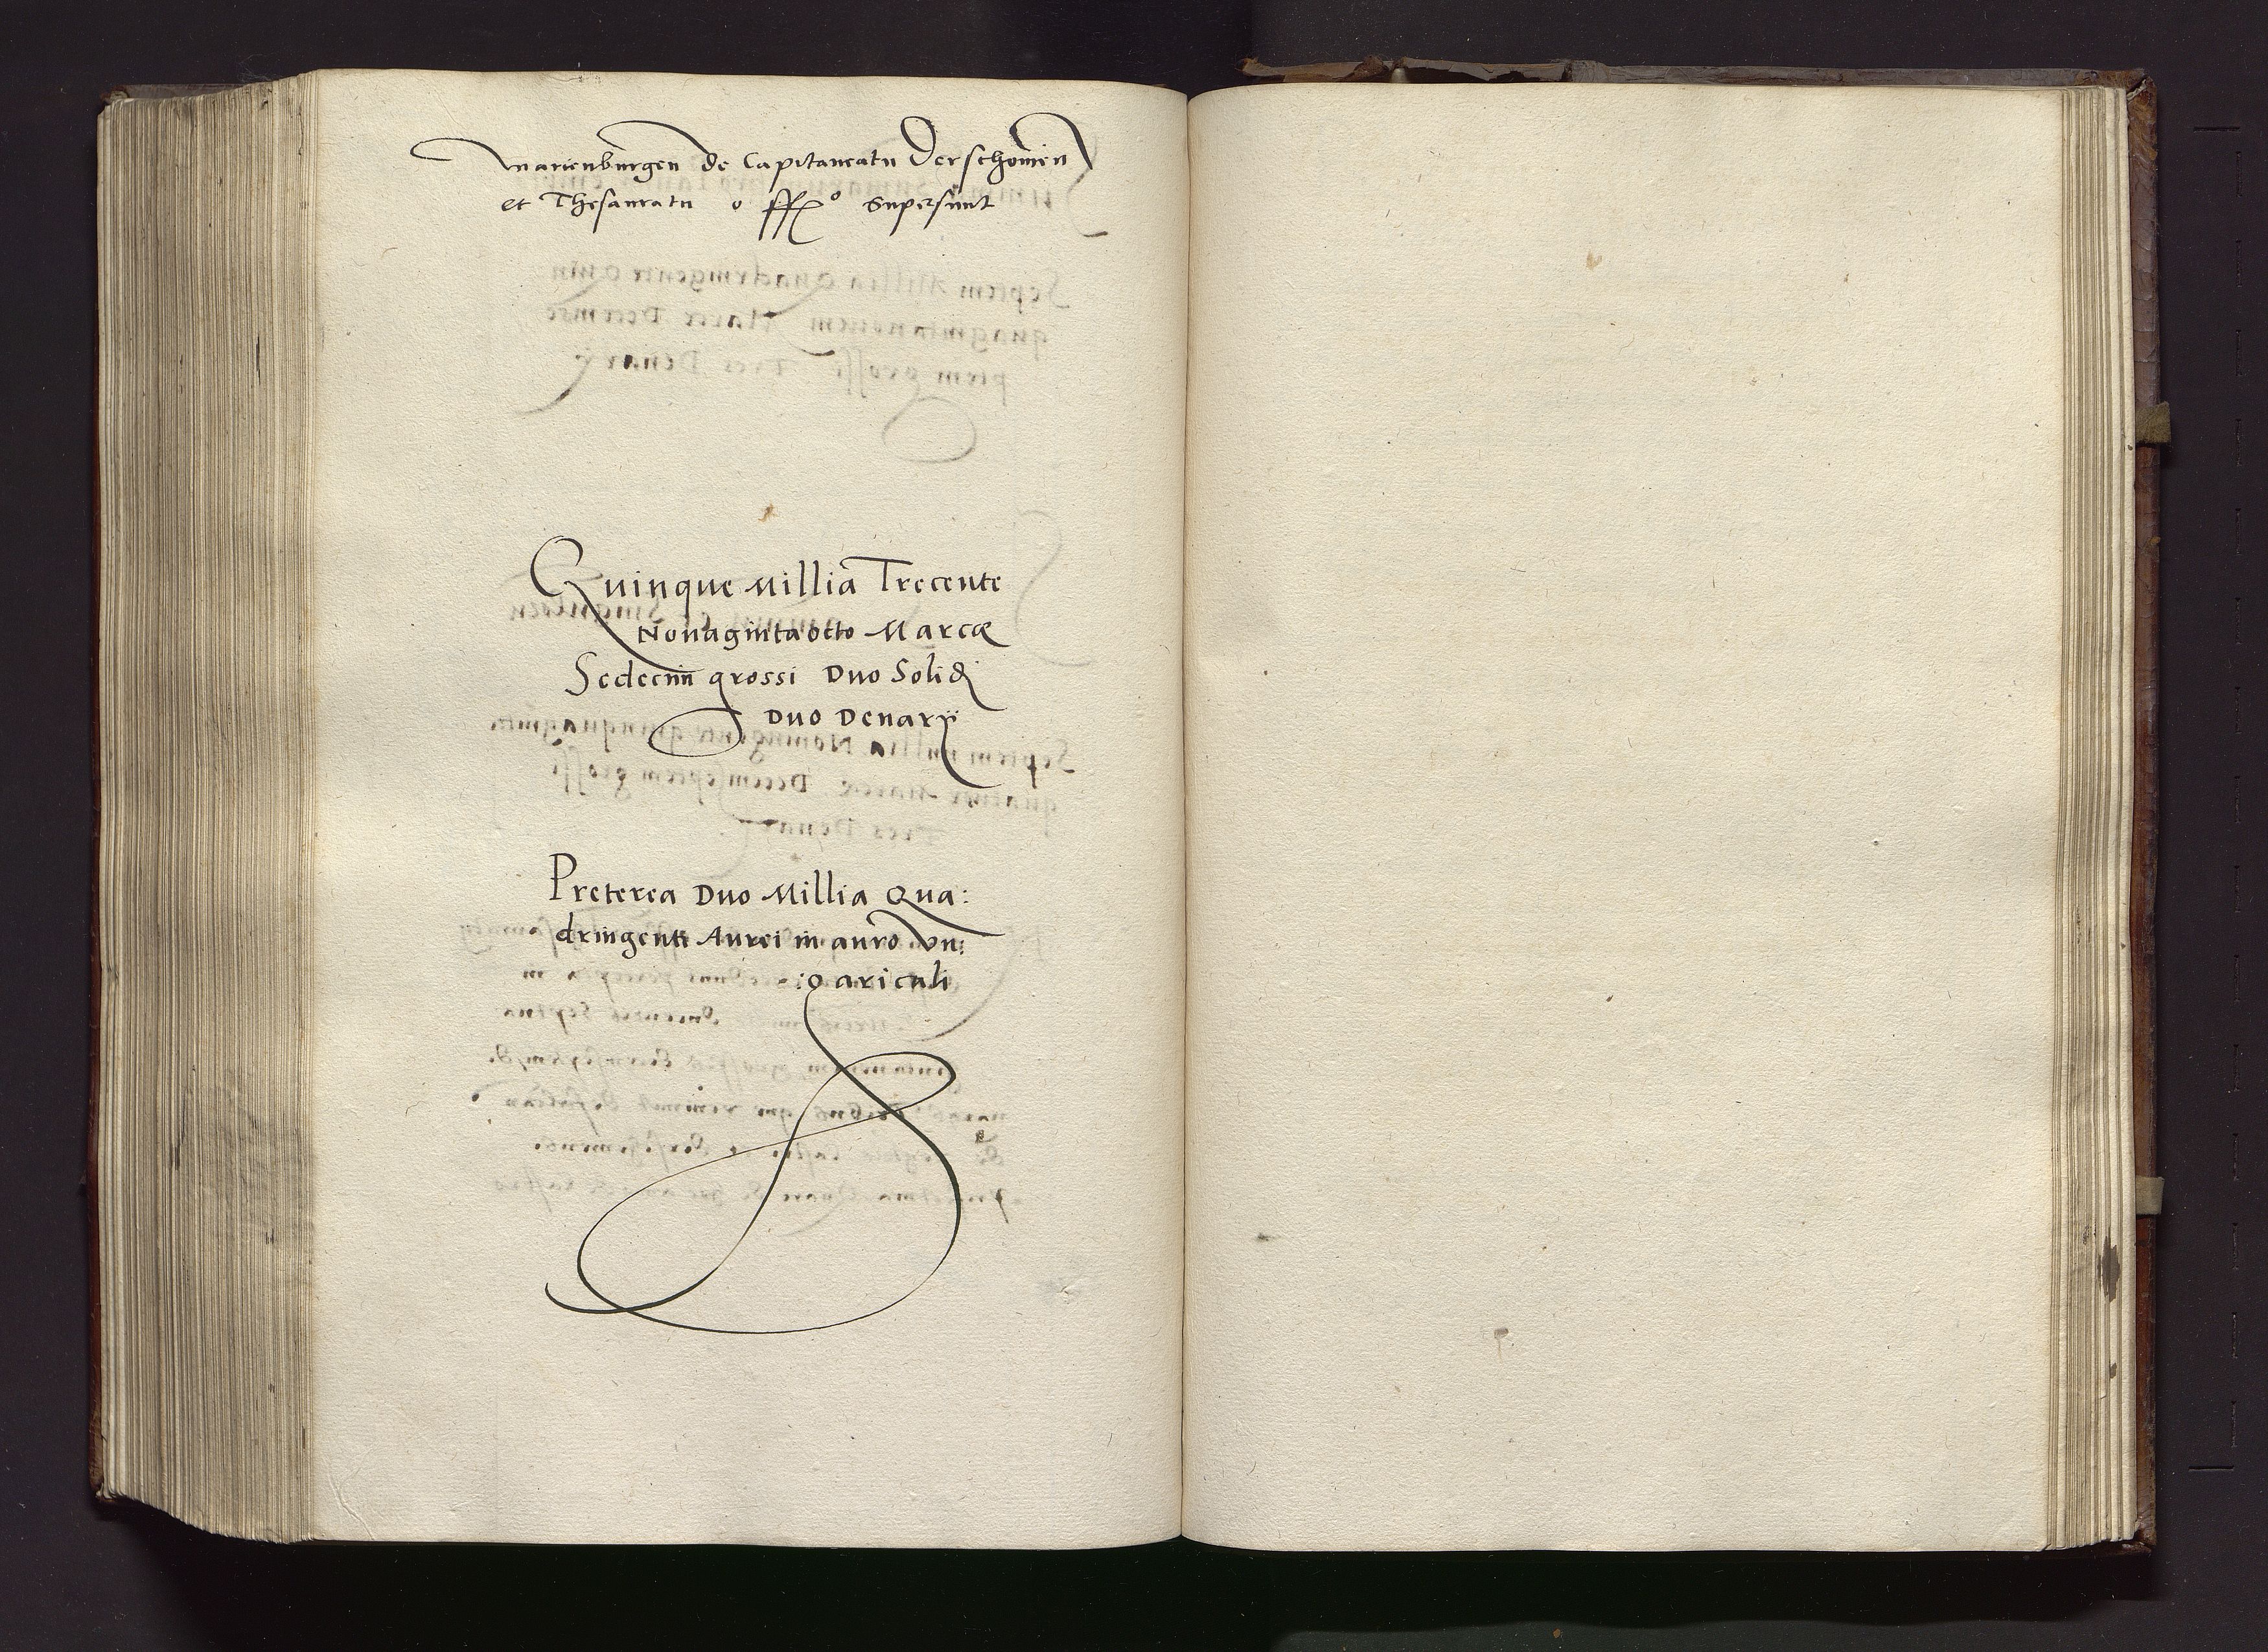 Marienburgen de Capitaneatu Derschouien
et Thesauratu Supersunt
Quinque Millia Trecente
Nonaginta octo Marcæ
Sedecim grossi Duo Solidi
Duo Denarÿ
Preterea Duo Millia Qua:
dringenti Aurei in auro Vn:
:garicali